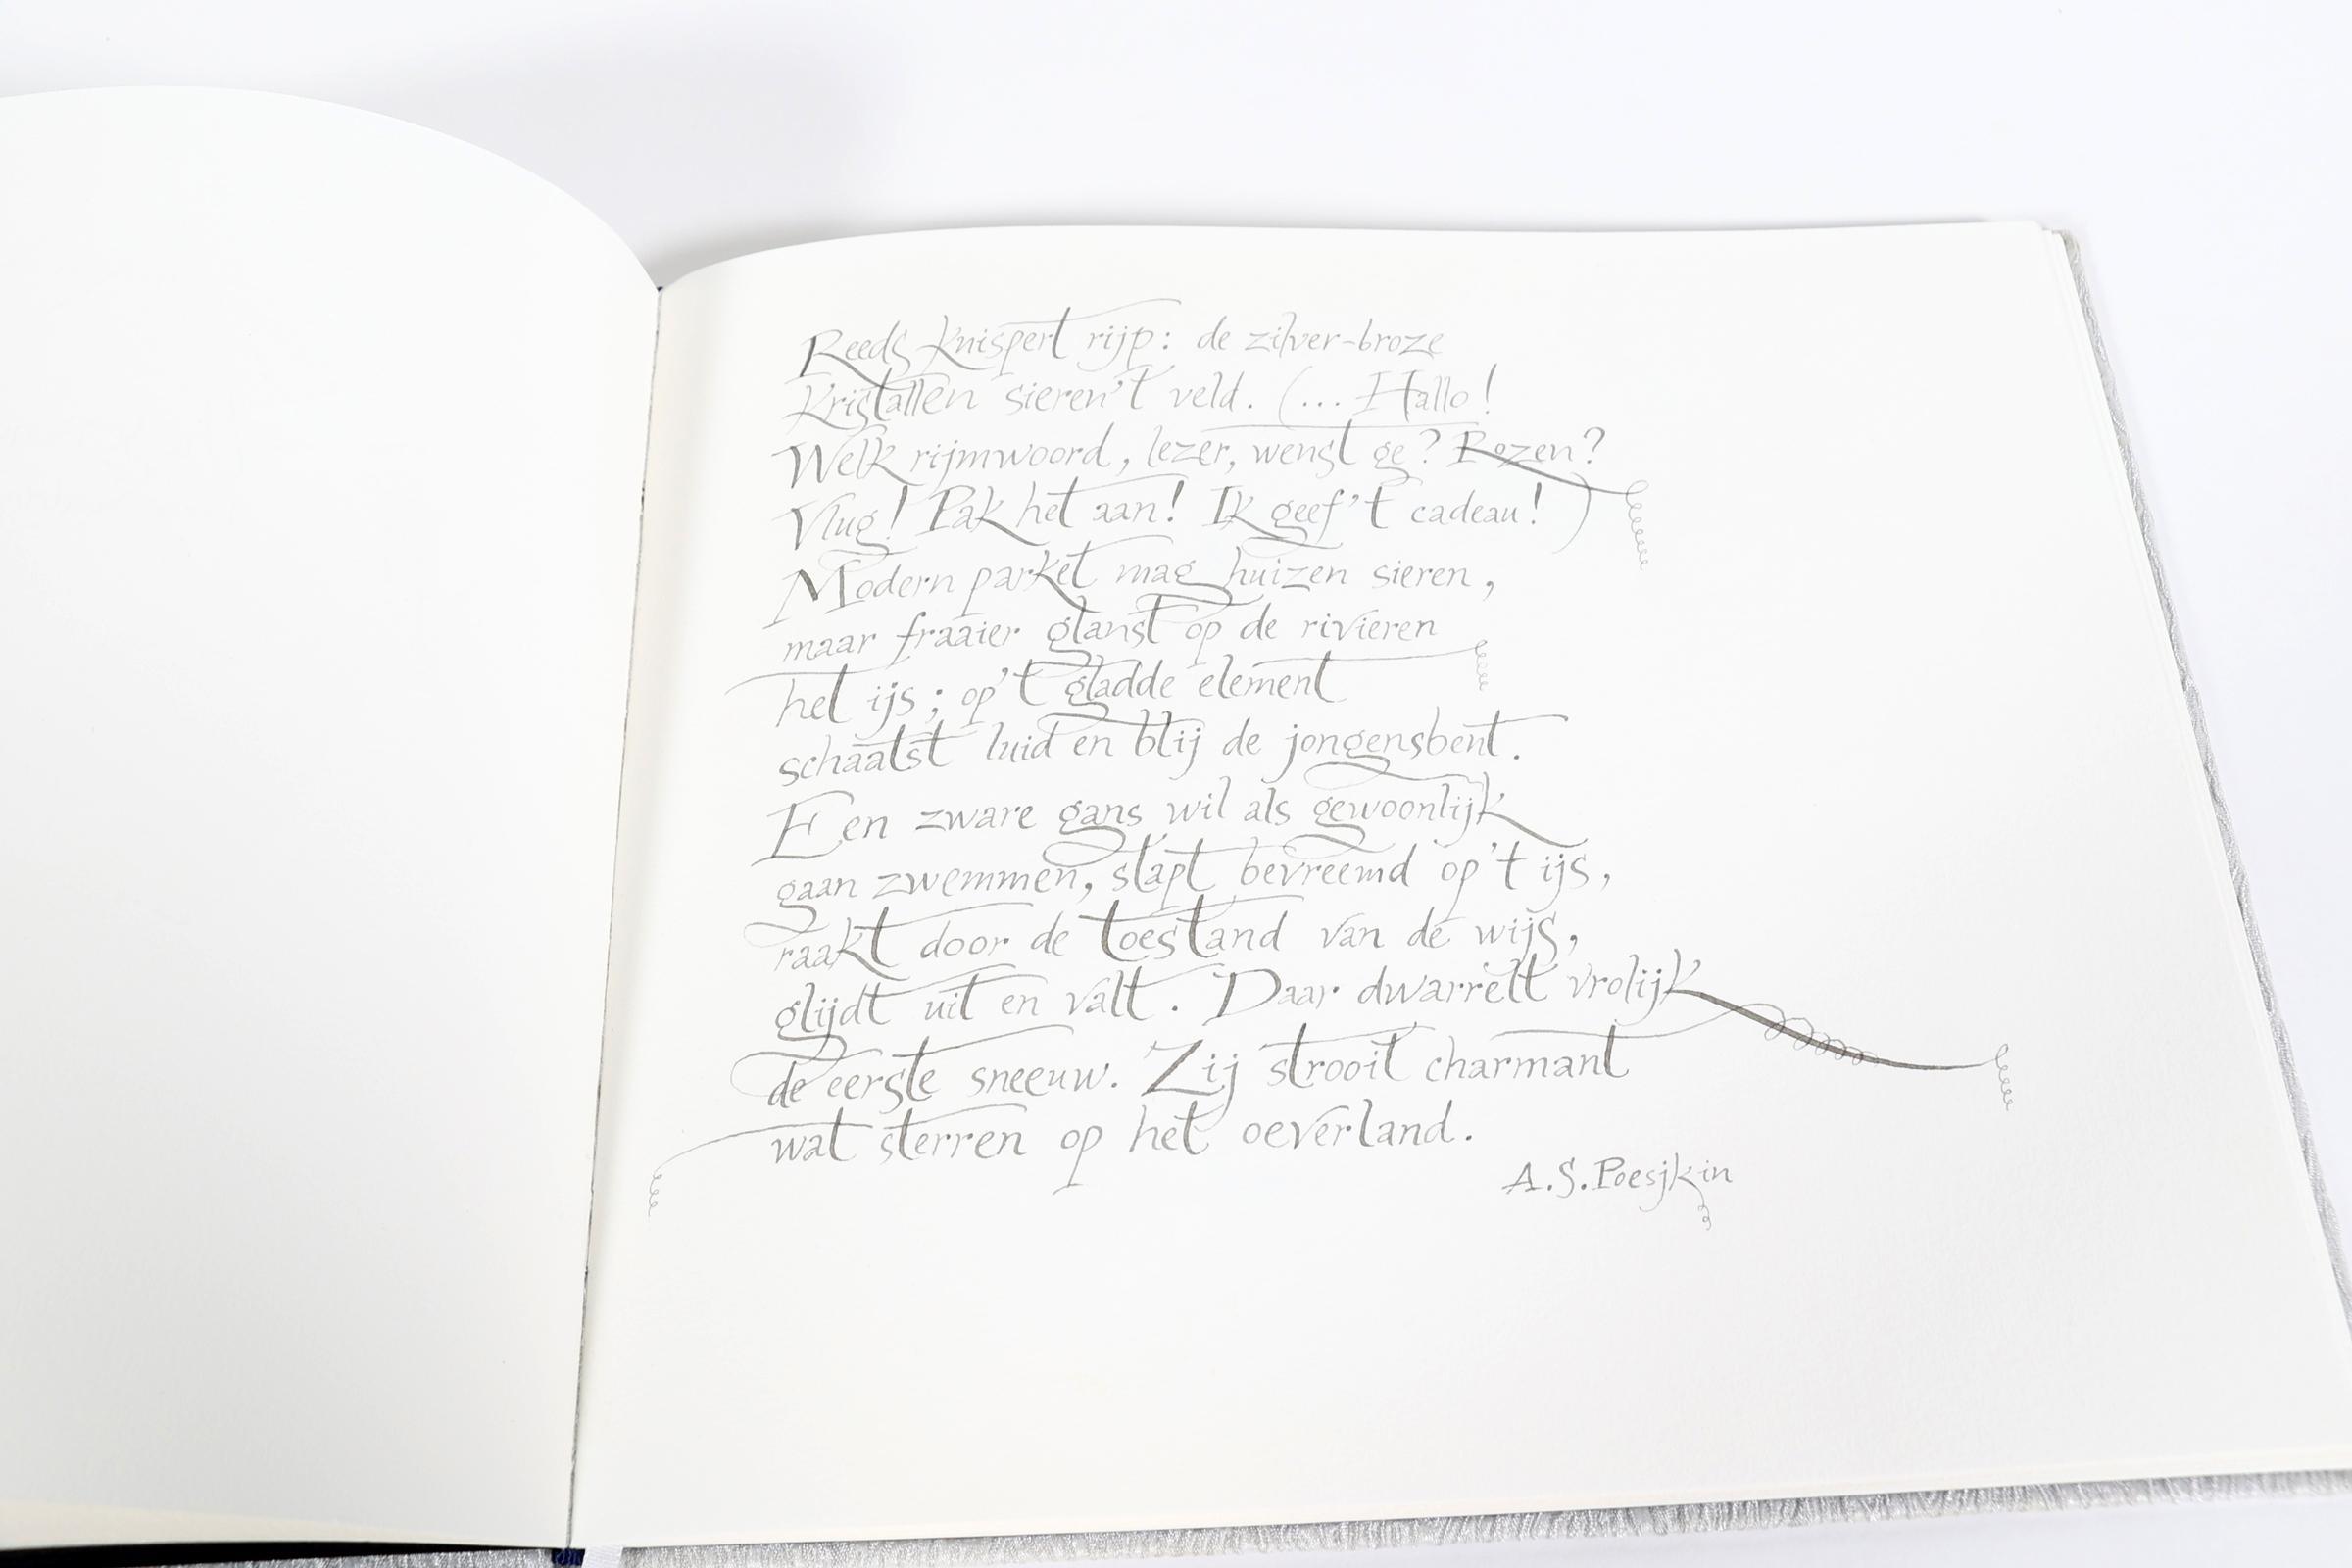 Reeds knispert rijp: de zilver-broze
kristallen sieren 't veld. (... Hallo!
Welk rijmwoord, lezer, wenst ge? Rozen?
Vlug! Pak het aan! Ik geef 't cadeau!)
Modern parket mag huizen sieren,
maar fraaier glanst op de rivieren
het ijs; op 't gladde element
schaatst luid en blij de jongensbent.
Een zware gans wil als gewoonlijk
gaan zwemmen, stapt bevreemd op 't ijs,
raakt door de toestand van de wijs,
glijdt uit en valt. Daar dwarrelt vrolijk
de eerste sneeuw. Zij strooit charmant
wat sterren op het oeverland.
A.S. Poesjkin